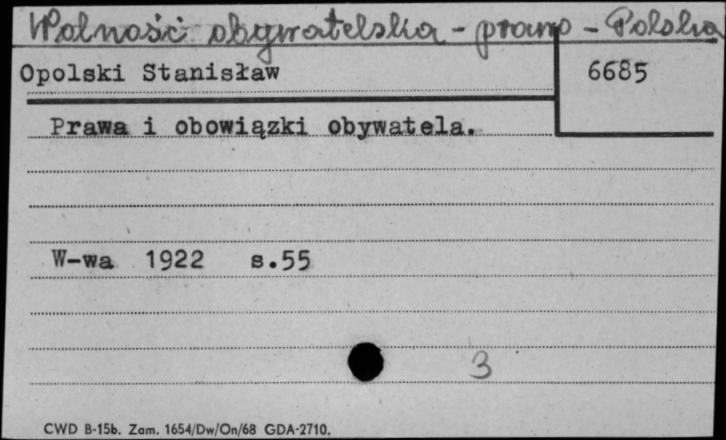 Wolność obywatelska - prawo - Polska
Opolski Stanisław
6685
Prawa i obowiązki obywatela.
W-wa 1922 s.55
3
CWD B-15b. Zam. 1654/Dw/On/68 GDA-2710.